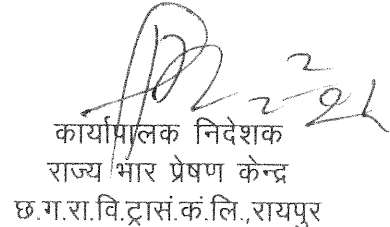 कार्यापालक निदेशक
राज्य भार प्रेषण केन्द्र
छ.ग.रा.वि.ट्रासं.कं.लि.,रायपुर